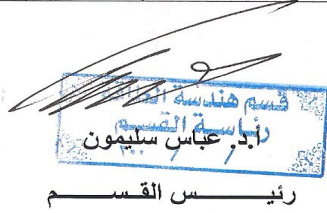 قسم هندسة الطاقة
رئاسة القسم
أ.د. عباس سليمون
رئيس القسم